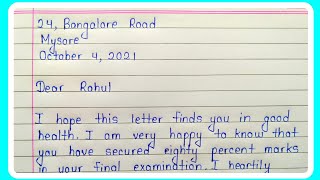 24, Bangalore Road
Mysore
October 4, 2021
Dear Rahul
I hope this letter finds you in good
health. I am very happy to know that
you have secured eighty percent marks
in your final examination. I heartily